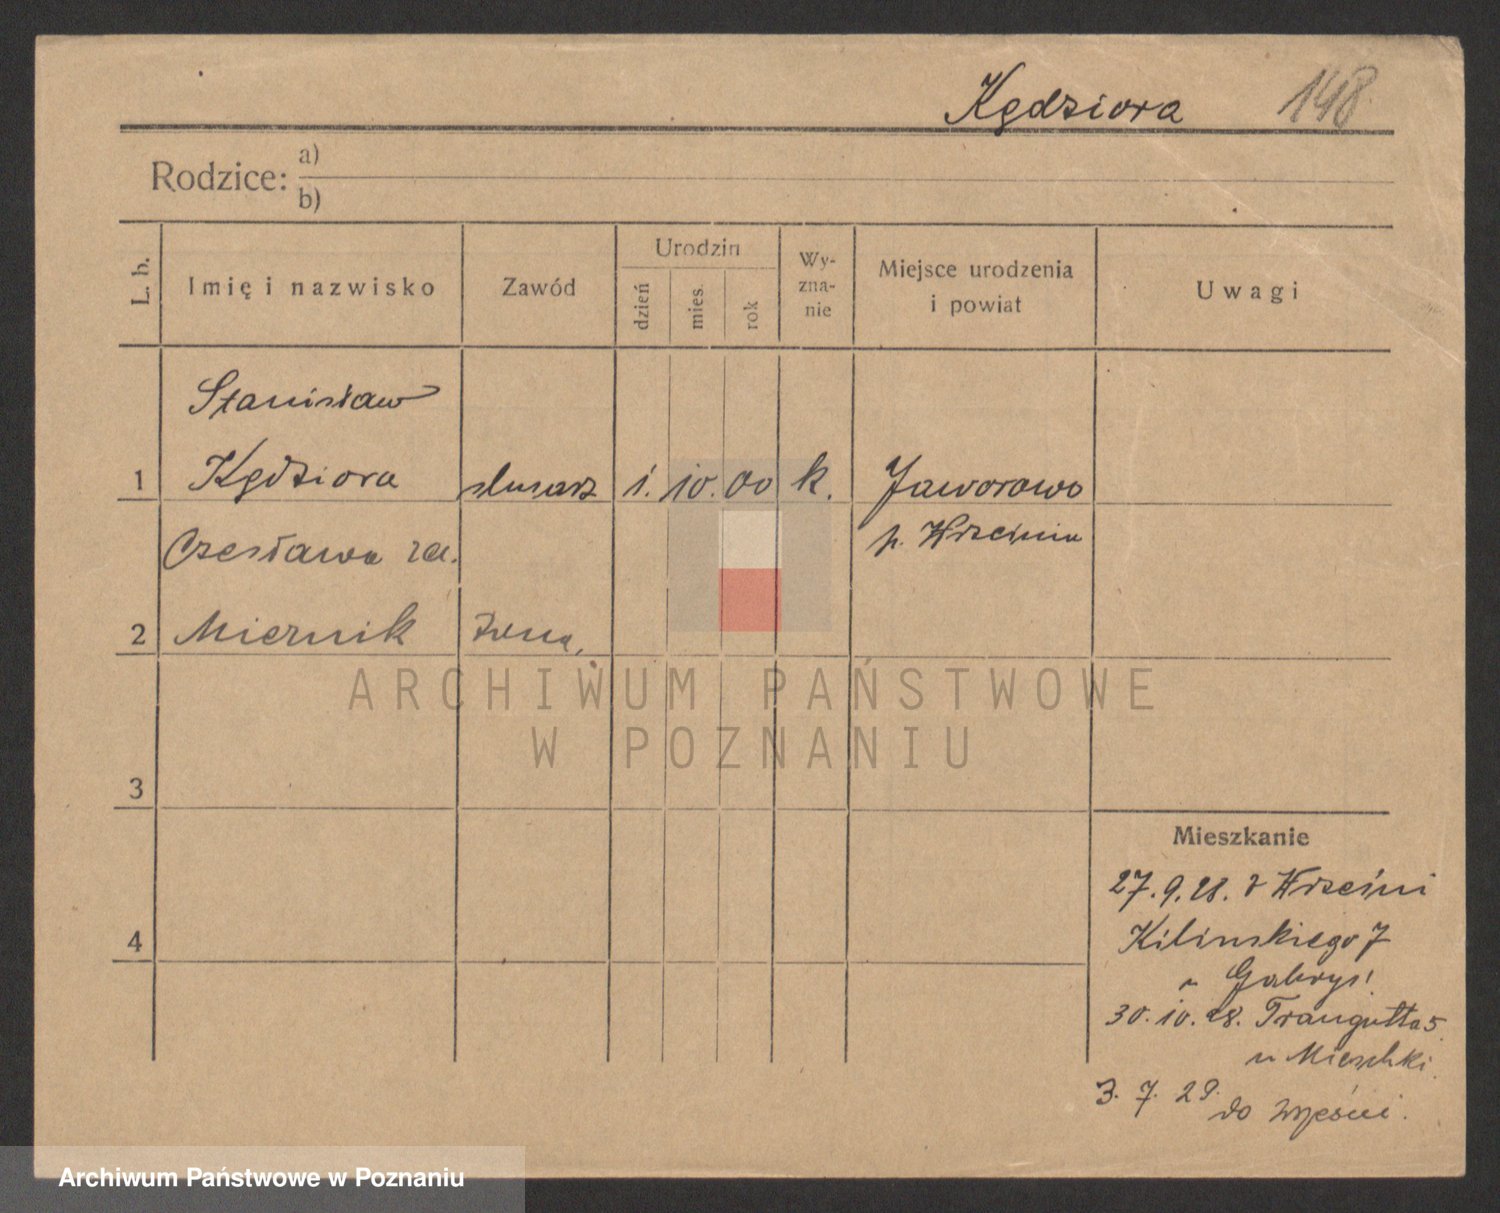 Kędziora 148
Rodzice: a)
b)
L. b.
Imię i nazwisko
Zawód
Urodzin
dzień
mies.
rok
Wy-
zna-
nie
Miejsce urodzenia
i powiat
Uwagi
Stanisław
1 Kędziora ślusarz 1. 10. 00 k. Jaworowo
p. Września
Czesława
2 Miernik żona,
3
4
Mieszkanie
27.9.28. z Wrześni
Kilinskiego 7
u Gabrys!
30.10.28. Traugutta 5
u
3. 7. 29.
do Wrześni.
ARCHIWUM PAŃSTWOWE
W POZNANIU
Archiwum Państwowe w Poznaniu